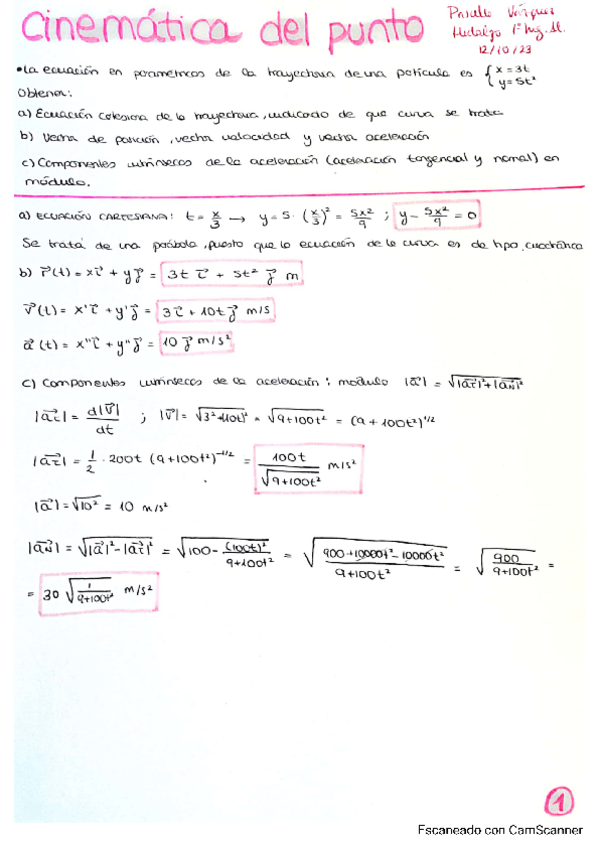 Cinemática del punto
Vázquez
Hidalgo 1º Ing. M.
12/10/23
•La ecuación en paramétricas de la trayectoria de una partícula es { x = 3t
y = 5t²
Obtener:
a) Ecuación cartesiana de la trayectoria, indicando de que curva se trata
b) Vector de posición, vector velocidad y vector aceleración
c) Componentes intrínsecos de la aceleración (aceleración tangencial y normal) en
módulo.
a) ECUACIÓN CARTESIANA: t = x/3 → y = 5 · (x/3)² = 5x²/9 ; y - 5x²/9 = 0
Se trata de una parábola, puesto que la ecuación de la curva es de tipo cuadrática
b) r⃗(t) = x i⃗ + y j⃗ = 3t i⃗ + 5t² j⃗ m
v⃗(t) = x' i⃗ + y' j⃗ = 3 i⃗ + 10t j⃗ m/s
a⃗(t) = x'' i⃗ + y'' j⃗ = 10 j⃗ m/s²
c) Componentes intrínsecos de la aceleración: módulo |a⃗| = √(|a⃗t|² + |a⃗N|²)
|a⃗t| = d|v⃗|/dt ; |v⃗| = √(3² + (10t)²) = √(9+100t²) = (9+100t²)^1/2
|a⃗t| = 1/2 · 200t (9+100t²)^-1/2 = 100t/√(9+100t²) m/s²
|a⃗| = √10² = 10 m/s²
|a⃗N| = √(|a⃗|² - |a⃗t|²) = √(100 - (100t)²/(9+100t²)) = √((900+10000t²-10000t²)/(9+100t²)) = √(900/(9+100t²)) =
= 30 √(1/(9+100t²)) m/s²
1
Escaneado con CamScanner